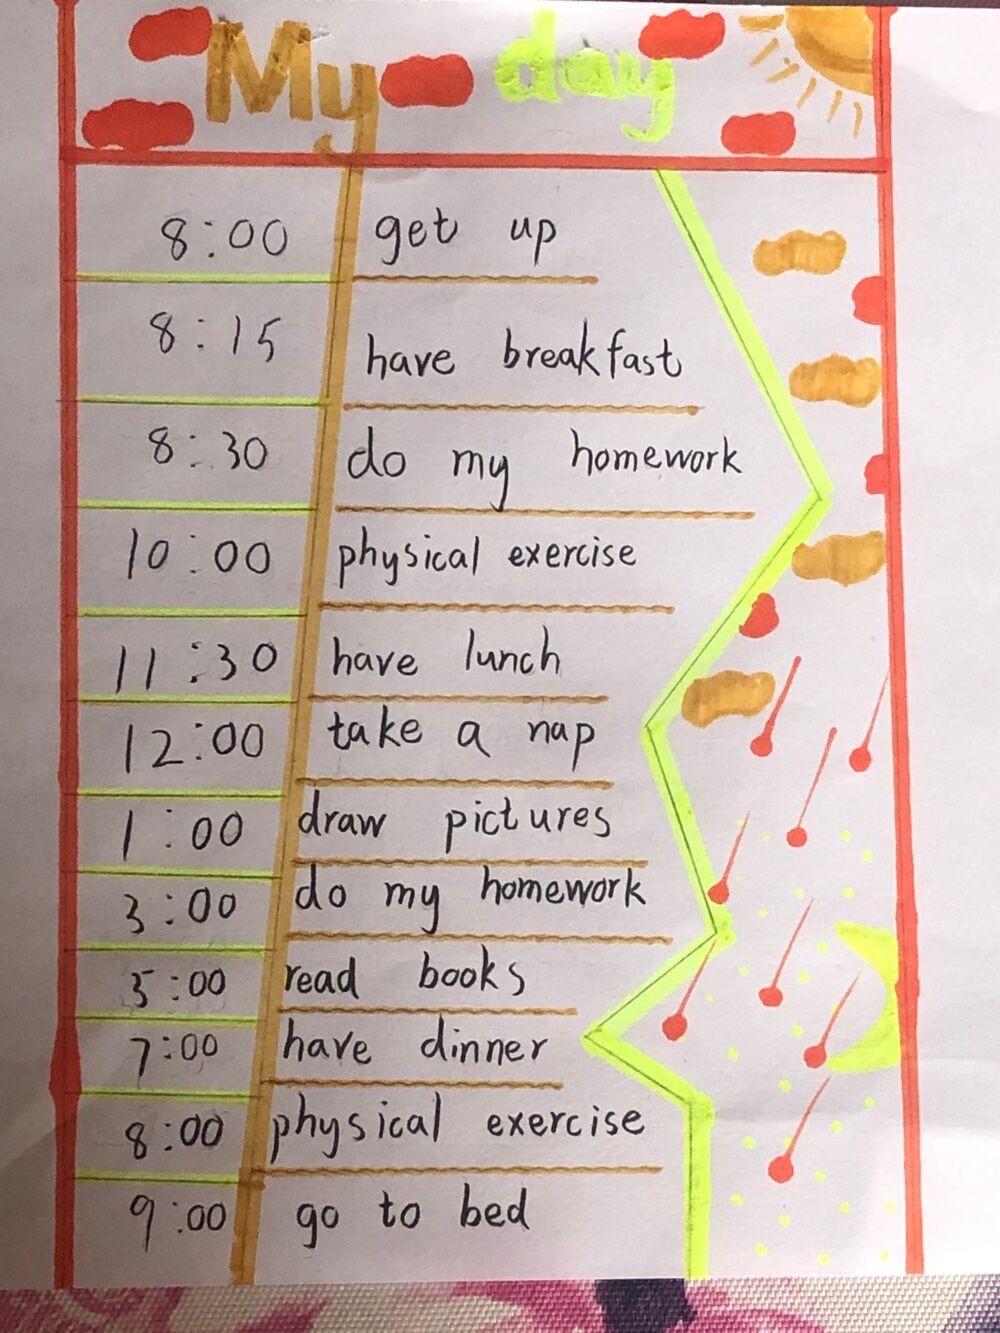 My day
8:00 get up
8:15 have breakfast
8:30 do my homework
10:00 physical exercise
11:30 have lunch
12:00 take a nap
1:00 draw pictures
3:00 do my homework
5:00 read books
7:00 have dinner
8:00 physical exercise
9:00 go to bed